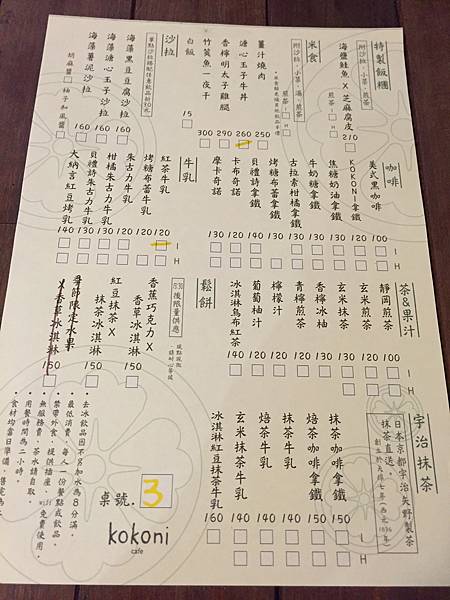 特製飯糰
附沙拉、小菜、煎茶
海鹽鮭魚 X 芝麻腐皮 210
米食
附沙拉、小菜、湯、煎茶
薑汁燒肉 250
溏心玉子牛丼 260
香檸明太子雞腿 290
竹莢魚一夜干 300
白飯 15
沙拉
單點沙拉搭配任意飲品折30元
海藻黑豆豆腐沙拉 160
海藻溏心玉子沙拉 160
海藻薯泥沙拉 160
胡麻醬 柚子和風醬
咖啡
I H
美式黑咖啡 100
KOKONI拿鐵 120
焦糖奶油拿鐵 130
牛奶糖拿鐵 130
古拉索柑橘拿鐵 130
烤糖布蕾拿鐵 130
貝禮詩拿鐵 140
卡布奇諾 120
摩卡奇諾 130
牛乳
I H
紅茶牛乳 120
烤糖布蕾牛乳 120
朱古力牛乳 120
柑橘朱古力牛乳 130
貝禮詩朱古力牛乳 130
大納言紅豆烤乳 140
茶&果汁
I H
靜岡煎茶 100
玄米煎茶 100
玄米抹茶 130
香檸冰柚 130
青檸煎茶 120
檸檬汁 100
葡萄柚汁 120
冰淇淋烏布紅茶 140
鬆餅
1530後限量供應
現點現做、請耐心等候
香蕉巧克力 X 香草冰淇淋 150
紅豆抹茶 X 抹茶冰淇淋
季節限定水果 X 香草冰淇淋 150
宇治抹茶
日本京都宇治矢野製茶
抹茶直送。
I H
抹茶咖啡拿鐵 150
焙茶咖啡拿鐵 150
抹茶牛乳 140
焙茶牛乳 140
玄米抹茶牛乳 140
冰淇淋紅豆抹茶牛乳 160
桌號. 3
kokoni
cafe
・去冰飲品因不另加水為8分滿。
・最低消費，每人一份餐點或飲品。
・禁帶外食，提供插座、wifi免費使用。
・無服務費，茶水請自取。
・用餐時間為二小時。
・食材均當日準備，售完為